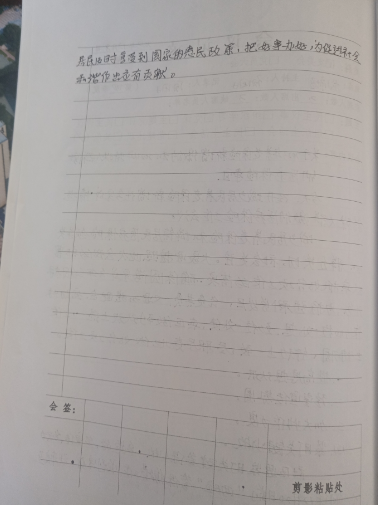 时享受到国家的惠民政策,把好事办好,为促进社会
和谐作出应有贡献。
会签:
剪影粘贴处